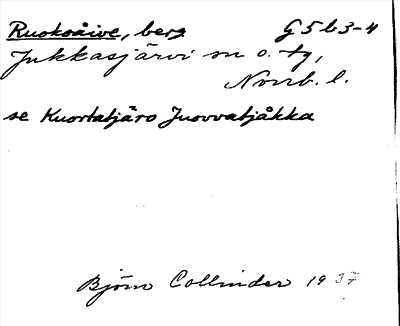 Ruokoåive, berg G5b3-4
Jukkasjärvi sn o. tg,
Norrb. l.
se Kuortatjåro Juovvatjåkka
Björn Collinder 1937